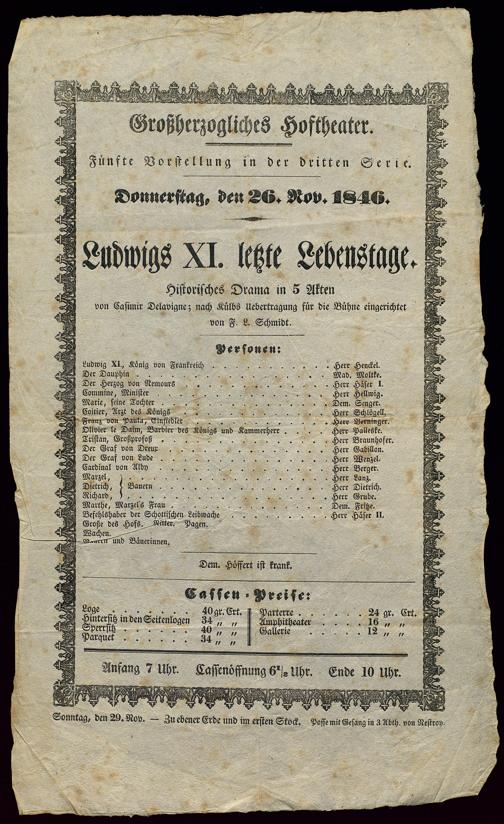 Großherzogliches Hoftheater.
Fünfte Vorstellung in der dritten Serie.
Donnerstag, den 26. Nov. 1846.
Ludwigs XI. letzte Lebenstage.
Historisches Drama in 5 Akten
von Casimir Delavigne; nach Külbs Uebertragung für die Bühne eingerichtet
von F. L. Schmidt.
Personen:
Ludwig XI., König von Frankreich Herr Henckel.
Der Dauphin Mad. Moltke.
Der Herzog von Nemours Herr Häser I.
Commine, Minister Herr Hellwig.
Marie, seine Tochter Dem. Senger.
Coitier, Arzt des Königs Herr Schlögell.
Franz von Paula, Einsiedler Herr Berninger.
Olivier le Daim, Barbier des Königs und Kammerherr Herr Palleske.
Tristan, Großprofoß Herr Braunhofer.
Der Graf von Dreux Herr Gabillon.
Der Graf von Lude Herr Wenzel.
Cardinal von Alby Herr Berger.
Marzel, Herr Lanz.
Dietrich, Bauern Herr Dietrich.
Richard, Herr Grube.
Marthe, Marzel's Frau Dem. Fritze.
Befehlshaber der Schottischen Leibwache Herr Häser II.
Große des Hofs. Ritter. Pagen.
Wachen.
Bauern und Bäuerinnen.
Dem. Höffert ist krank.
Cassen-Preise:
Loge 40 gr. Crt.
Hintersitz in den Seitenlogen 34 „ „
Sperrsitz 40 „ „
Parquet 34 „ „
Parterre 24 gr. Crt.
Amphitheater 16 „ „
Gallerie 12 „ „
Anfang 7 Uhr. Cassenöffnung 6 1/2 Uhr. Ende 10 Uhr.
Sonntag, den 29. Nov. — Zu ebener Erde und im ersten Stock. Posse mit Gesang in 3 Abth. von Nestroy.